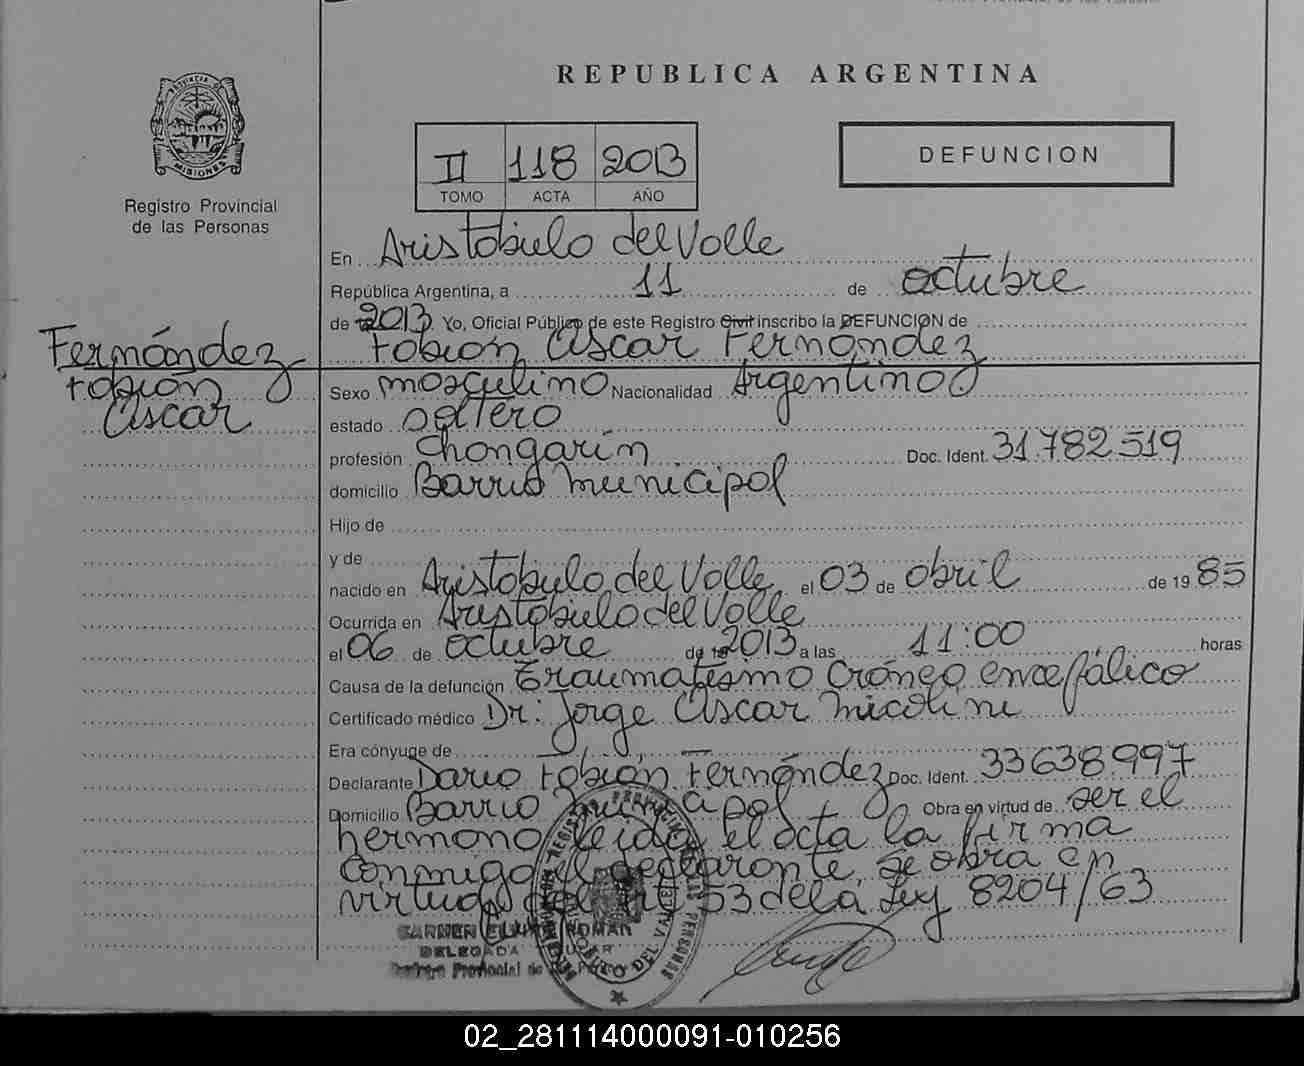 REPUBLICA ARGENTINA
DEFUNCION
PROVINCIA D
MISIONES
Registro Provincial
de las Personas
II 118 2013
TOMO ACTA AÑO
En Aristobulo del Valle
República Argentina, a 11 de octubre
de 19 2013 Yo, Oficial Público de este Registro Civil inscribo la DEFUNCION de
Fabián Oscar Fernández
Fernández
Fabián
Oscar
Sexo masculino Nacionalidad Argentino
estado soltero
profesión Changarín Doc. Ident. 31.782.519
domicilio Barrio Municipal
Hijo de
y de
nacido en Aristobulo del Valle el 03 de abril de 19 85
Ocurrida en Aristobulo del Valle
el 06 de octubre de 19 2013 a las 11:00 horas
Causa de la defunción Traumatismo Cráneo encefálico
Certificado médico Dr: Jorge Oscar Nicolini
Era cónyuge de
Declarante Dario Fabián Fernández Doc. Ident. 33638.997
Domicilio Barrio Obra en virtud de ser el
hermano leida el acta la firma
conmigo el declarante se obra en
virtud del Art 53 de la Ley 8204/63
CARMEN ROMAN
DELEGADA
Provincial de
DEL VALLE
02_281114000091-010256